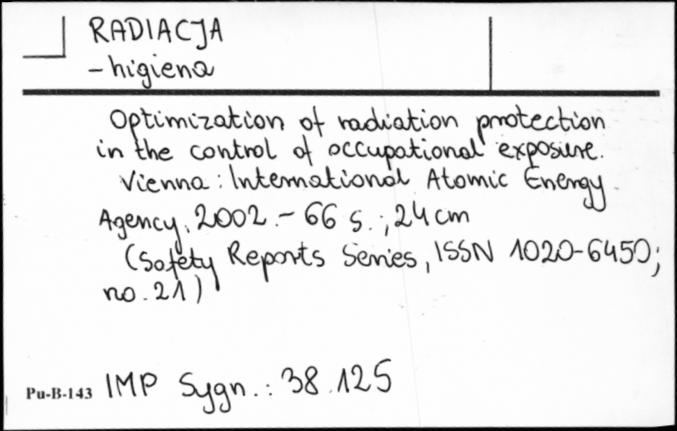 RADIACJA
- higiena
Optimization of radiation protection
in the control of occupational exposure.
Vienna : International Atomic Energy
Agency, 2002. - 66 s. ; 24 cm
(Safety Reports Series, ISSN 1020-6450;
no. 21)
Pu-B-143 IMP Sygn. : 38.125